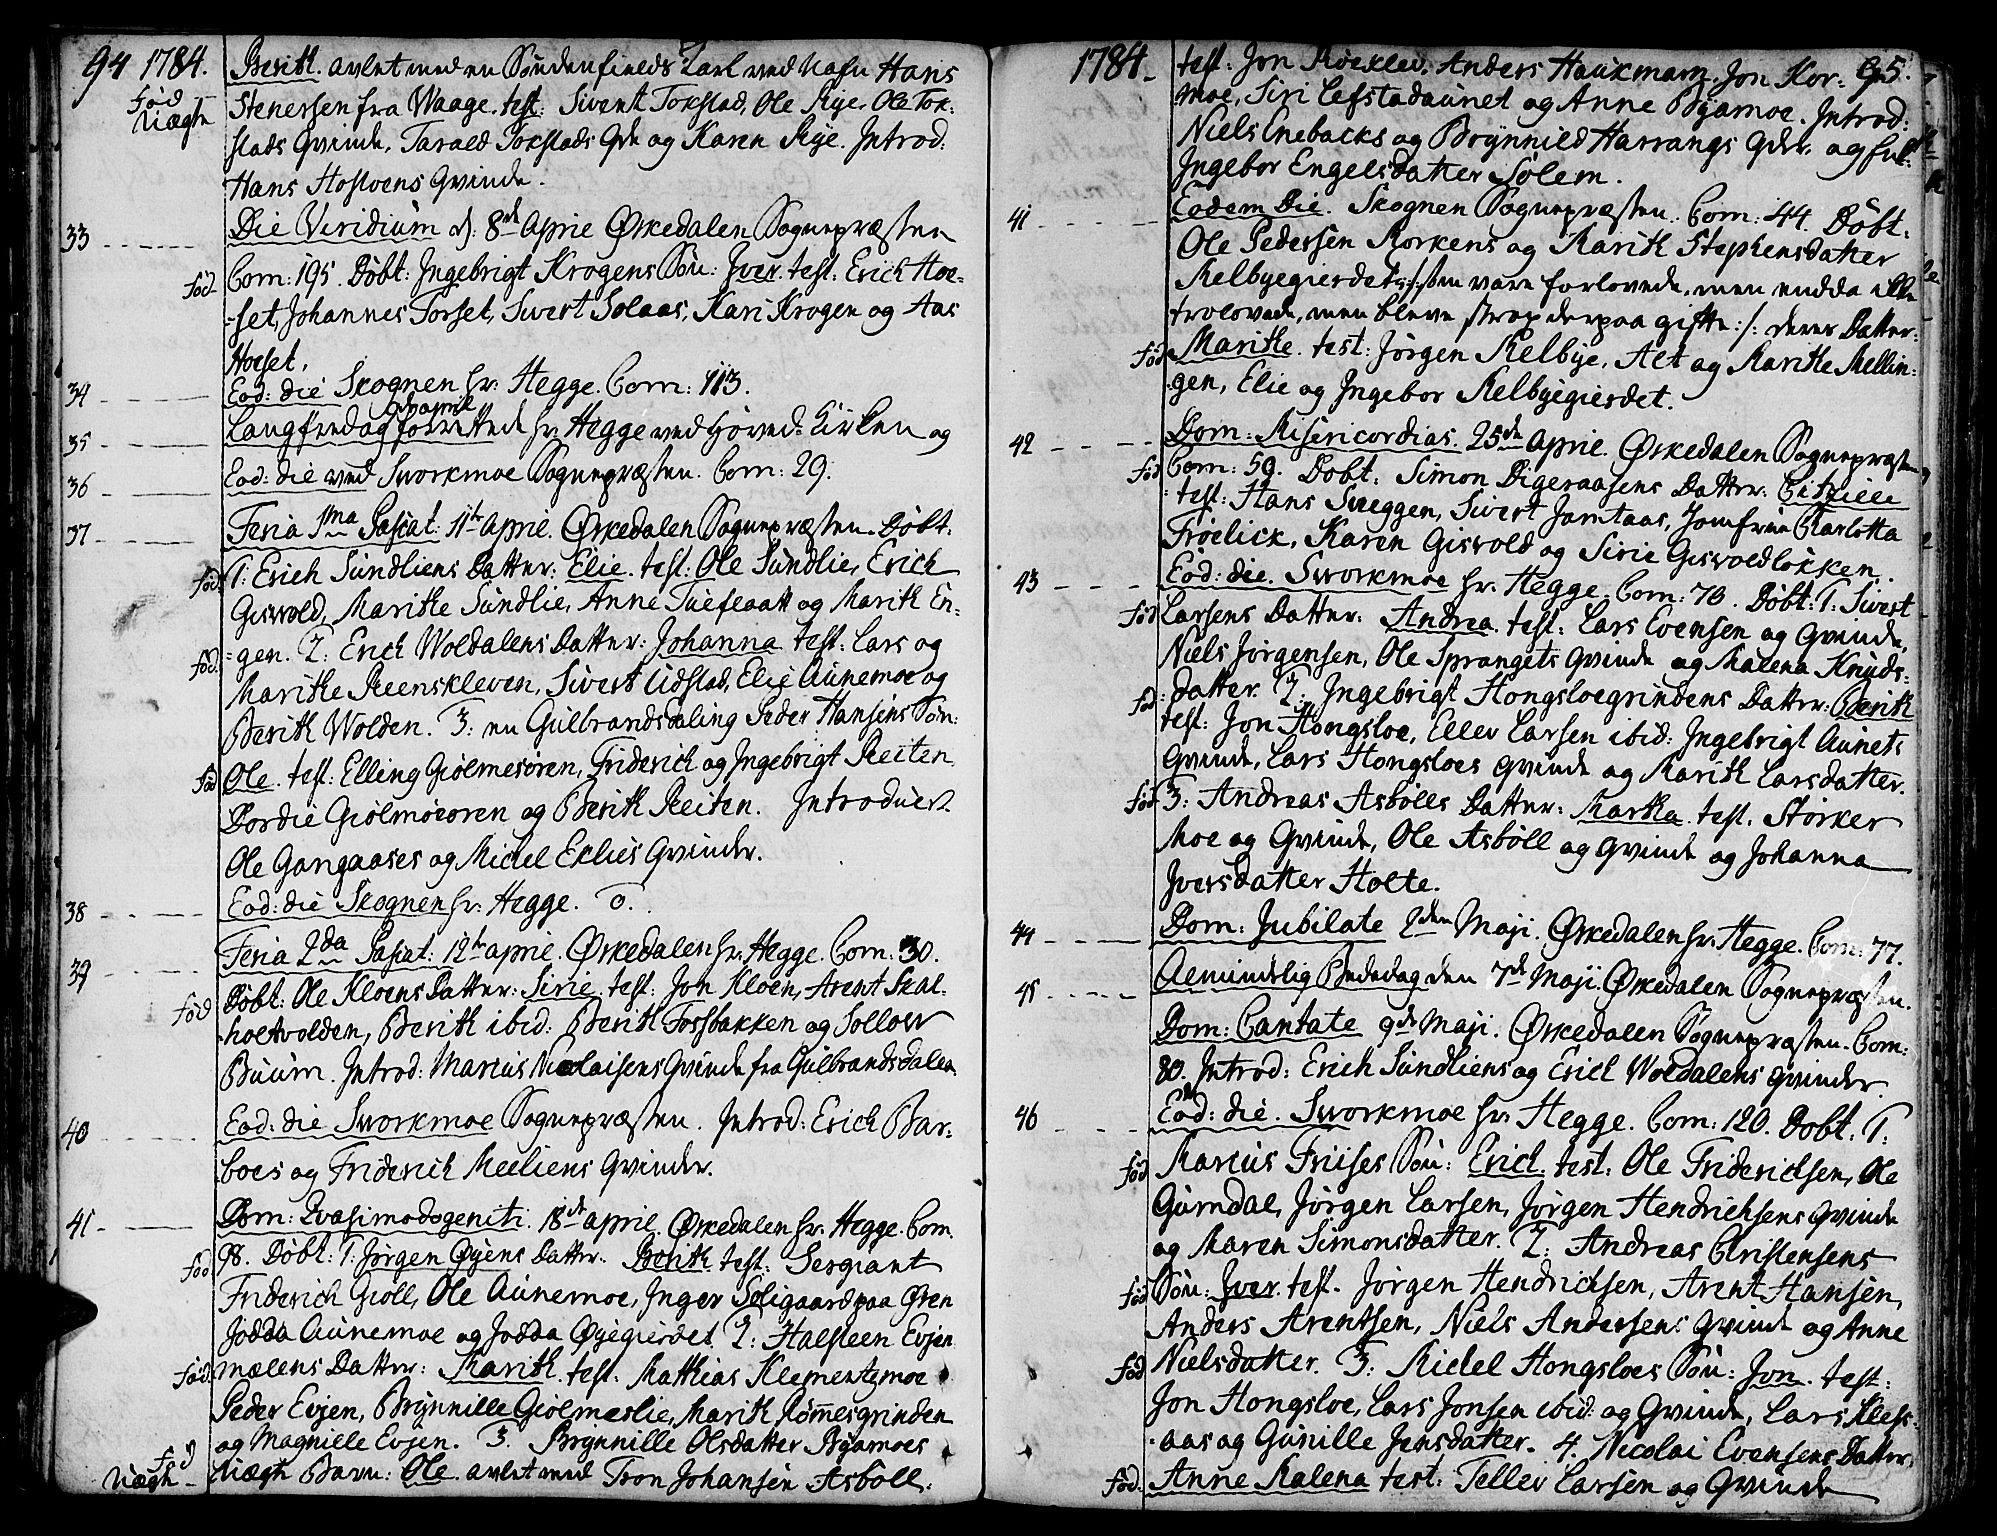 94 1784. Berith. avlet med en Søndenfields Karl ved Nafn Hans
Fød Uægte Stenersen fra Waage. test: Sivert Tokstad, Ole Rye, Ole Tok:
stads Qvinde, Tarald Tokstads Qde og Karen Rye. Introd:
Hans Hosloens Qvinde.
33 Die Viridium d. 8de Aprie Ørkedalen Sognepræsten
fød Com: 195. Døbt: Ingebrigt Krogens Søn: Iver. test: Erich Hoe-
-set, Johannes Forset, Sivert Solaas, Kari Krogen og Aas
Hoeset.
34 Eod: die Skognen hr. Hegge. Com: 113.
35 Langfredag forrettede hr. Hegge ved Hoved-Kirken og
36 Eod: die ved Svorkmoe Sognepræsten. Com: 29.
37 Feria 1ma Pascat: 11te Aprie. Ørkedalen Sognepræsten. Døbt.
fød 1: Erich Sundliens Datter: Elie. test: Ole Sundlie, Erich
Gisvold, Marithe Sundlie, Anne Tuefloatt og Marith En-
fød -gen. 2: Erich Woldalens Datter: Johanna test: Lars og
Marithe Reenskleven, Sivert Udstad, Elie Aunemoe og
Berith Wolden. 3: en Gulbrandsdaling Peder Hansens Søn:
fød Ole. test: Elling Giølmesøren, Friderich og Ingebrigt Reiten,
Dordie Giølmoeoren og Berith Reiten. Introducert
Ole Gangaases og Michel Eclies Qvinder.
38 Eod: die Skognen hr. Hegge. 0.
39 Feria 2da Pascat: 12te aprie. Ørkedalen hr. Hegge. Com: 30.
fød Døbt: Ole Kloens Datter: Sirie. test: Jon Kloen, Arent Skal-
-holtvolden, Berith ibid: Berith Fossbakken og Sollow
Buum. Introd: Marcus Nicolaisens Qvinde fra Gulbrandsdalen
40 Eod: die Svorkmoe Sognepræsten. Introd: Erich Bar-
boes og Friderich Meeliens Qvinder.
41 Dom: Qvasimodogeniti. 18de april. Ørkedalen hr. Hegge. Com.
fød 98. Døbt: 1. Jørgen Øyens Datter. Berith. test. Sergiant
Friderich Gioll, Ole Aunemoe, Inger Soligaard paa Øren
Jødda Aunemoe og Jødda Øyegierdet. 2: Halsteen Evjen
fød mælens Datter: Marith. test. Mathias Klementzmoe
Peder Evjen, Brynnille Giolmeslie, Marith Rømmesgrinden
og Magnille Evjen. 3. Brynnille Olsdatter Byamoes
fød Uægte Uægte Barn: Ole. avlet med Tron Johansen Asboll.
1784. test: Jon Røeklev, Anders Haukmarn, Jon Kor: 95.
moe, Siri Lefstadaunet og Anne Byamoe. Introd:
Niels Enebacks og Brynnild Harrangs Qder. og
Ingebor Engelsdatter Solem.
41 Eodem Die. Skognen Sognepræsten. Com: 44. Døbt.
Ole Pedersen Korkens og Marith Stephensdatter
Kelbyegierdet /: som vare forlovede, men endda ikke
trolovede, men bleve strax derpaa gifte :/ deres Datter:
fød Marithe. test: Jørgen Kelbye, Alt og Marithe Mellin:
gen, Elie og Ingebor Kelbyegierdet.
42 Dom: Misericordias. 25de Aprie. Ørkedalen Sognepræsten
fød Com: 59. Døbt. Simon Digeraasens Datter: Citzilie
test: Hans Sneggen, Sivert Jamtaas, Jomfrue Charlotta
Frøelick, Karen Gisvold og Sirie Gisvoldløkken.
43 Eod: die. Svorkmoe hr. Hegge. Com: 70. Døbt: 1. Sivert
fød Larsens Datter. Andrea. test: Lars Evensen og Qvinde,
Niels Jørgensen, Ole Sprangets Qvinde og Malena Knuds-
fød datter. 2: Ingebrigt Hongsloegrindens Datter: Berith
test: Jon Hongsloe, Ellev Larsen ibid: Ingebrigt Aunets
Qvinde, Lars Hongsloes Qvinde og Marith Larsdatter.
fød 3: Andreas Asbølls Datter: Martha. test. Størker
Moe og Qvinde, Ole Asböll og Qvinde og Johanna
Iversdatter Holte.
44 Dom: Jubilate 2den Maji. Ørkedalen hr. Hegge. Com: 77.
45 Almindelig Bededag den 7de Maji Ørkedalen Sognepræsten.
Dom: Cantate 9de Maji. Ørkedalen Sognepræsten. Com:
80. Introd: Erich Sundliens og Erich Woldalens Qvinder
46 Eod: die. Svorkmoe hr. Hegge. Com: 120. Døbt. 1:
fød Marcus Friises Søn: Erich. test. Ole Friderichsen, Ole
Garndal, Jørgen Larsen, Jørgen Hendrichsens Qvinde
og Maren Simonsdatter. 2: Andreas Christensens
fød Søn: Iver. test. Jørgen Hendrichsen, Arent Hansen,
Anders Arentsen, Niels Andersens Qvinde og Anne
fød Nielsdatter. 3: Michel Hongsloes Søn: Jon. test:
Jon Hongsloe, Lars Jonsen ibid: og Qvinde, Lars Klefs-
-aas og Gunille Jensdatter. 4. Nicolai Evensens Datter,
fød. Anne Malena test: Tellev Larsen og Qvinde